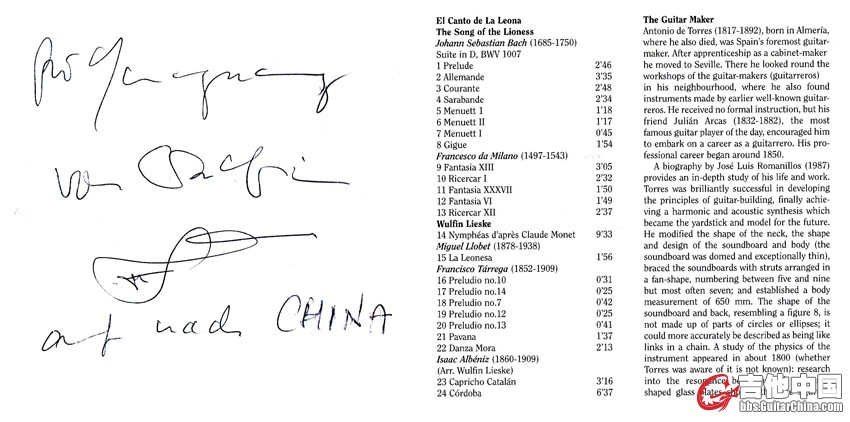 für
von Wulfin
auf nach CHINA
El Canto de La Leona
The Song of the Lioness
Johann Sebastian Bach (1685-1750)
Suite in D, BWV 1007
1 Prelude 2'46
2 Allemande 3'35
3 Courante 2'48
4 Sarabande 2'34
5 Menuett 1 1'18
6 Menuett II 1'17
7 Menuett I 0'45
8 Gigue 1'54
Francesco da Milano (1497-1543)
9 Fantasia XIII 3'05
10 Ricercar I 2'32
11 Fantasia XXXVII 1'50
12 Fantasia VI 1'49
13 Ricercar XII 2'37
Wulfin Lieske
14 Nymphéas d'après Claude Monet 9'33
Miguel Llobet (1878-1938)
15 La Leonesa 1'56
Francisco Tárrega (1852-1909)
16 Preludio no.10 0'31
17 Preludio no.14 0'25
18 Preludio no.7 0'42
19 Preludio no.12 0'25
20 Preludio no.13 0'41
21 Pavana 1'37
22 Danza Mora 2'13
Isaac Albéniz (1860-1909)
(Arr. Wulfin Lieske)
23 Capricho Catalán 3'16
24 Córdoba 6'37
The Guitar Maker
Antonio de Torres (1817-1892), born in Almería,
where he also died, was Spain's foremost guitar-
maker. After apprenticeship as a cabinet-maker
he moved to Seville. There he looked round the
workshops of the guitar-makers (guitarreros)
in his neighbourhood, where he also found
instruments made by earlier well-known guitar-
reros. He received no formal instruction, but his
friend Julián Arcas (1832-1882), the most
famous guitar player of the day, encouraged him
to embark on a career as a guitarrero. His pro-
fessional career began around 1850.
A biography by José Luis Romanillos (1987)
provides an in-depth study of his life and work.
Torres was brilliantly successful in developing
the principles of guitar-building, finally achie-
ving a harmonic and acoustic synthesis which
became the yardstick and model for the future.
He modified the shape of the neck, the shape
and design of the soundboard and body (the
soundboard was domed and exceptionally thin),
braced the soundboards with struts arranged in
a fan-shape, numbering between five and nine
but most often seven; and established a body
measurement of 650 mm. The shape of the
soundboard and back, resembling a figure 8, is
not made up of parts of circles or ellipses; it
could more accurately be described as being like
links in a chain. A study of the physics of the
instrument appeared in about 1800 (whether
Torres was aware of it is not known): research
into the
shaped glass
吉他中国
bbs.GuitarChina.com